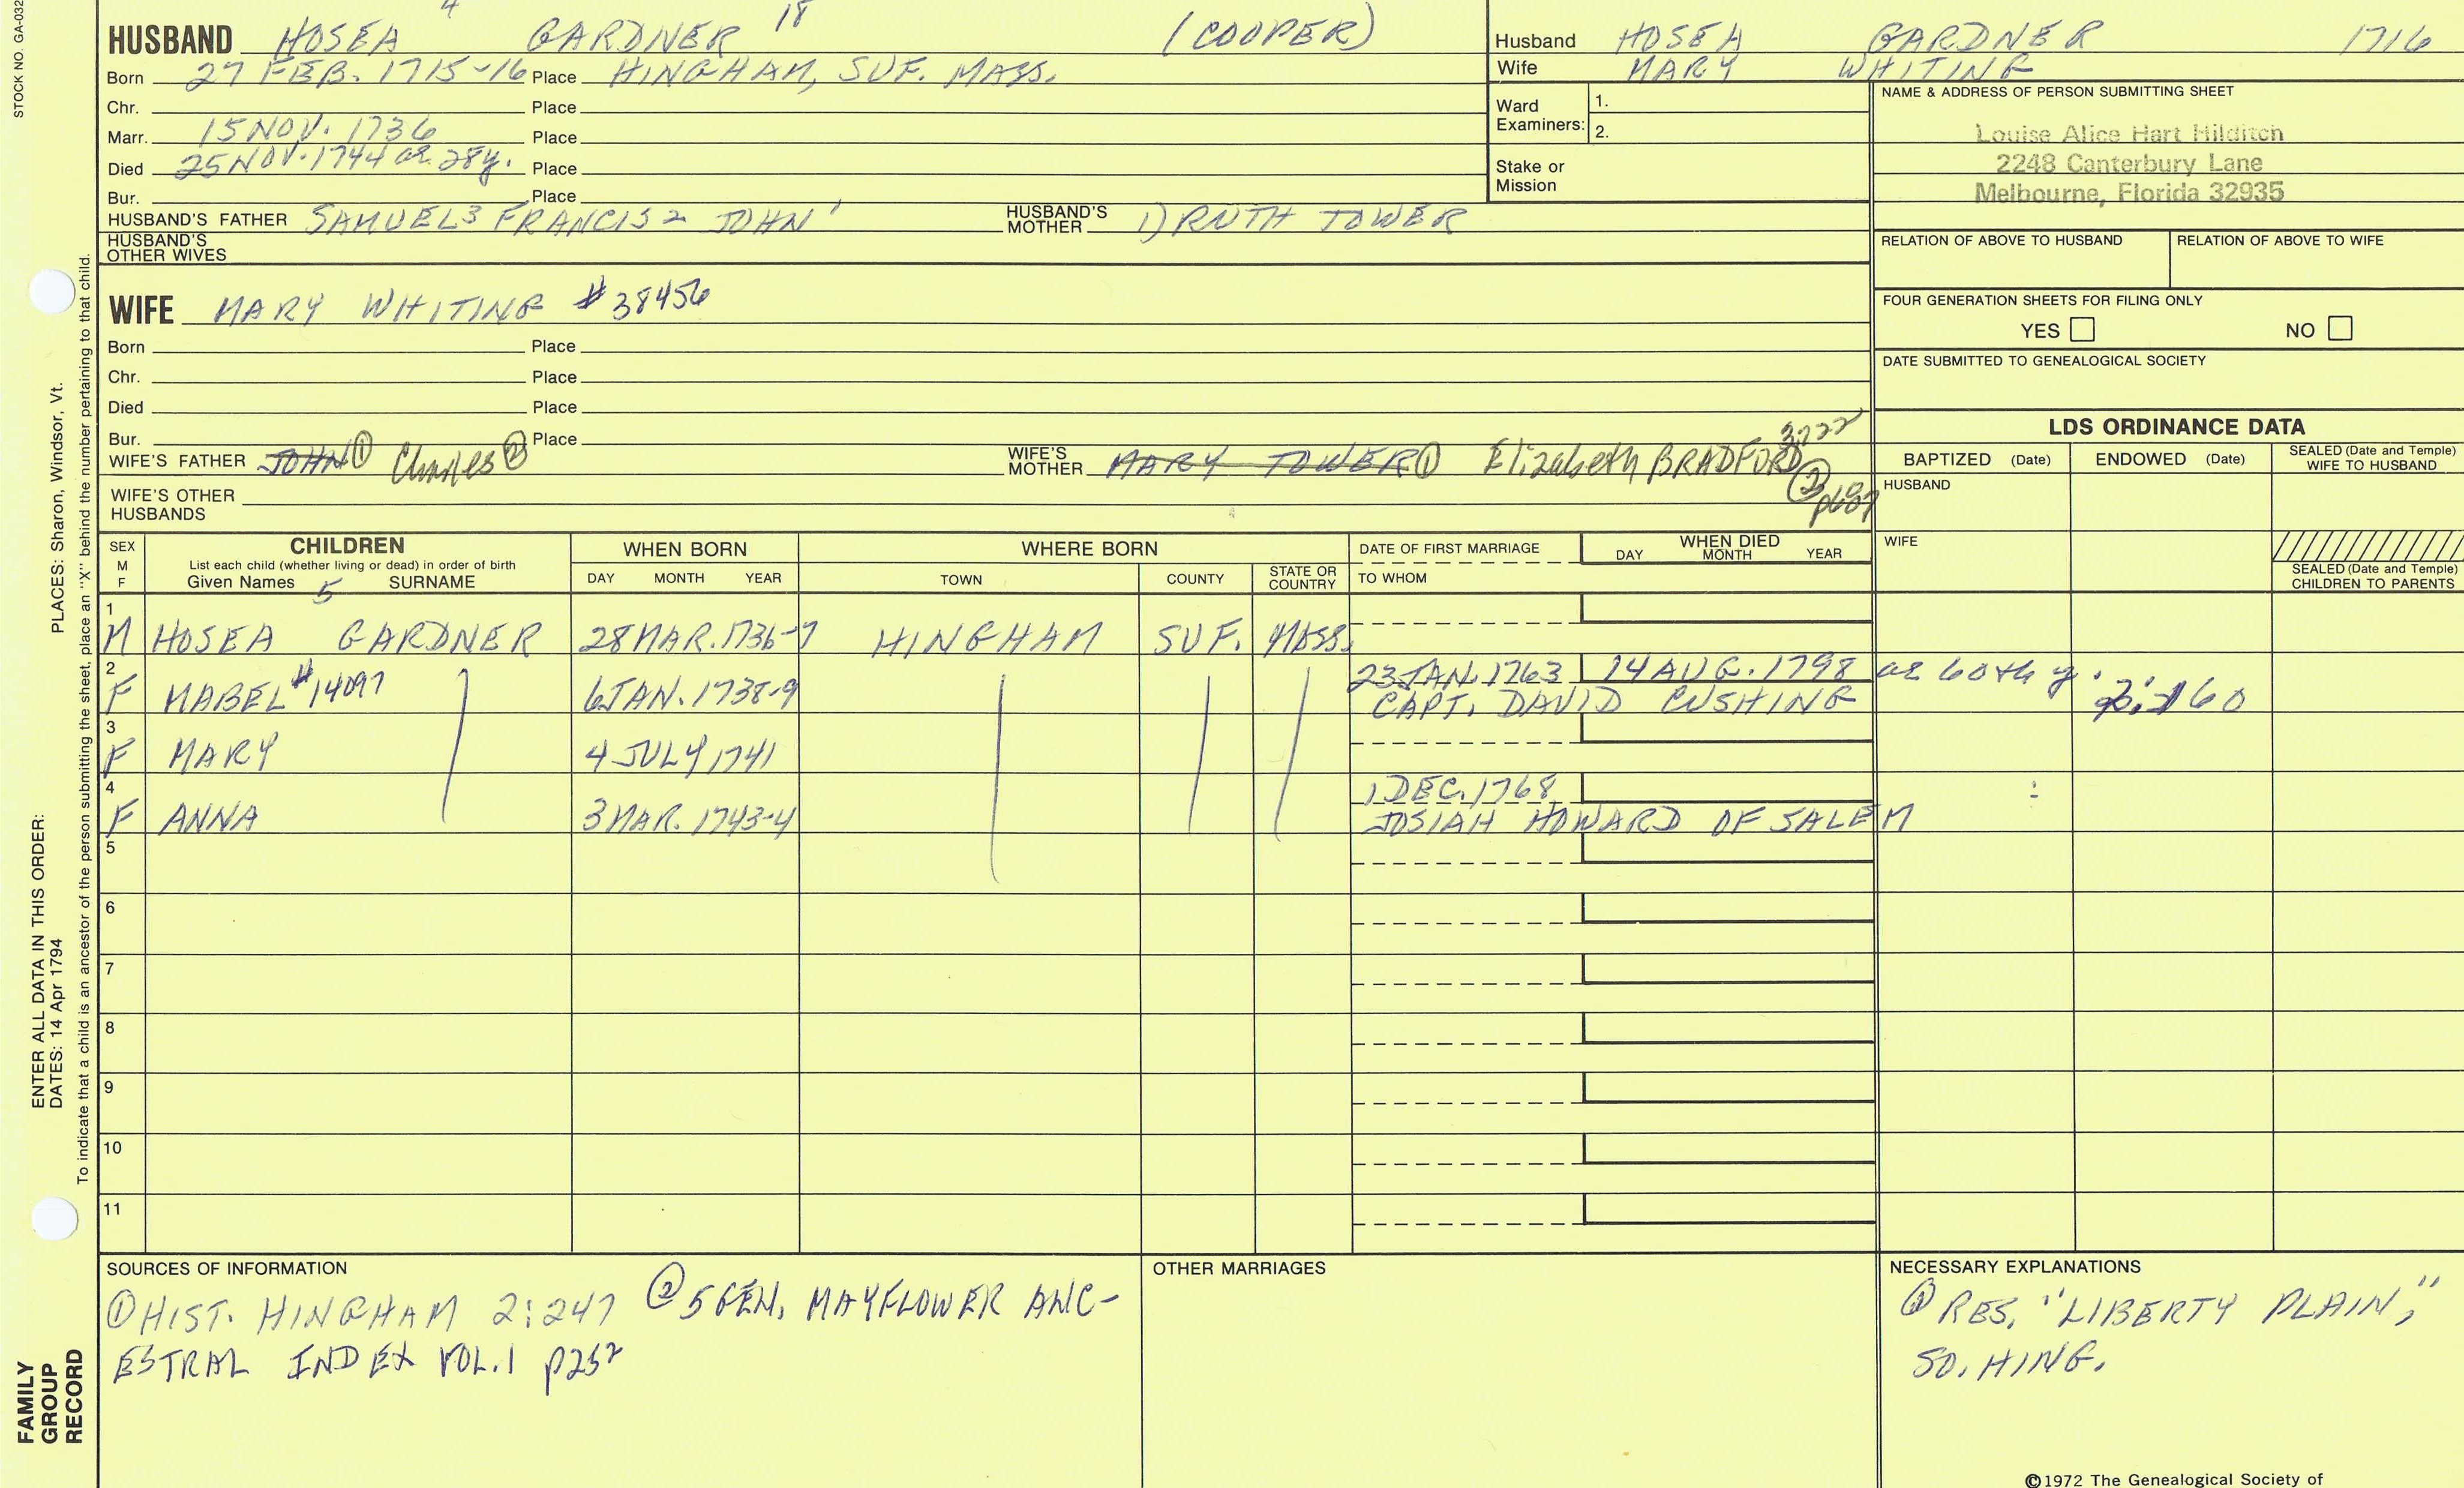 STOCK NO. GA-032
4 18
HUSBAND HOSEA GARDNER (COOPER)
Born 27 FEB. 1715-16 Place HINGHAM, SUF. MASS.
Chr. Place
Marr. 15 NOV. 1736 Place
Died 25 NOV. 1744 ae. 28y. Place
Bur. Place
HUSBAND'S FATHER SAMUEL3 FRANCIS2 JOHN1 HUSBAND'S MOTHER 1) RUTH TOWER
HUSBAND'S OTHER WIVES
Husband HOSEA GARDNER 1716
Wife MARY WHITING
Ward Examiners: 1.
2.
Stake or Mission
NAME & ADDRESS OF PERSON SUBMITTING SHEET
Louise Alice Hart Hilditch
2248 Canterbury Lane
Melbourne, Florida 32935
RELATION OF ABOVE TO HUSBAND RELATION OF ABOVE TO WIFE
FOUR GENERATION SHEETS FOR FILING ONLY
YES NO
DATE SUBMITTED TO GENEALOGICAL SOCIETY
WIFE MARY WHITING #38456
Born Place
Chr. Place
Died Place
Bur. Place
WIFE'S FATHER JOHN ① Charles ② WIFE'S MOTHER MARY TOWER ① Elizabeth BRADFORD ②
WIFE'S OTHER HUSBANDS
LDS ORDINANCE DATA
BAPTIZED (Date) ENDOWED (Date) SEALED (Date and Temple) WIFE TO HUSBAND
HUSBAND
WIFE
SEALED (Date and Temple) CHILDREN TO PARENTS
SEX M F
CHILDREN
List each child (whether living or dead) in order of birth
Given Names 5 SURNAME
WHEN BORN
DAY MONTH YEAR
WHERE BORN
TOWN COUNTY STATE OR COUNTRY
DATE OF FIRST MARRIAGE
TO WHOM
WHEN DIED
DAY MONTH YEAR
1
M HOSEA GARDNER 28 MAR. 1736-7 HINGHAM SUF. MASS.
2 23 JAN. 1763 14 AUG. 1798 ae 60th y.
F MABEL #14097 6 JAN. 1738-9 CAPT. DAVID CUSHING 2:160
3
F MARY 4 JULY 1741
4 1 DEC. 1768
F ANNA 3 MAR. 1743-4 JOSIAH HOWARD OF SALEM
5
6
7
8
9
10
11
SOURCES OF INFORMATION
① HIST. HINGHAM 2:247 ② 5 GEN. MAYFLOWER ANC-
ESTRAL INDEX VOL.1 p252
OTHER MARRIAGES
NECESSARY EXPLANATIONS
① RES. "LIBERTY PLAIN,"
SO. HING.
©1972 The Genealogical Society of
PLACES: Sharon, Windsor, Vt.
To indicate that a child is an ancestor of the person submitting the sheet, place an "X" behind the number pertaining to that child.
ENTER ALL DATA IN THIS ORDER:
DATES: 14 Apr 1794
FAMILY
GROUP
RECORD